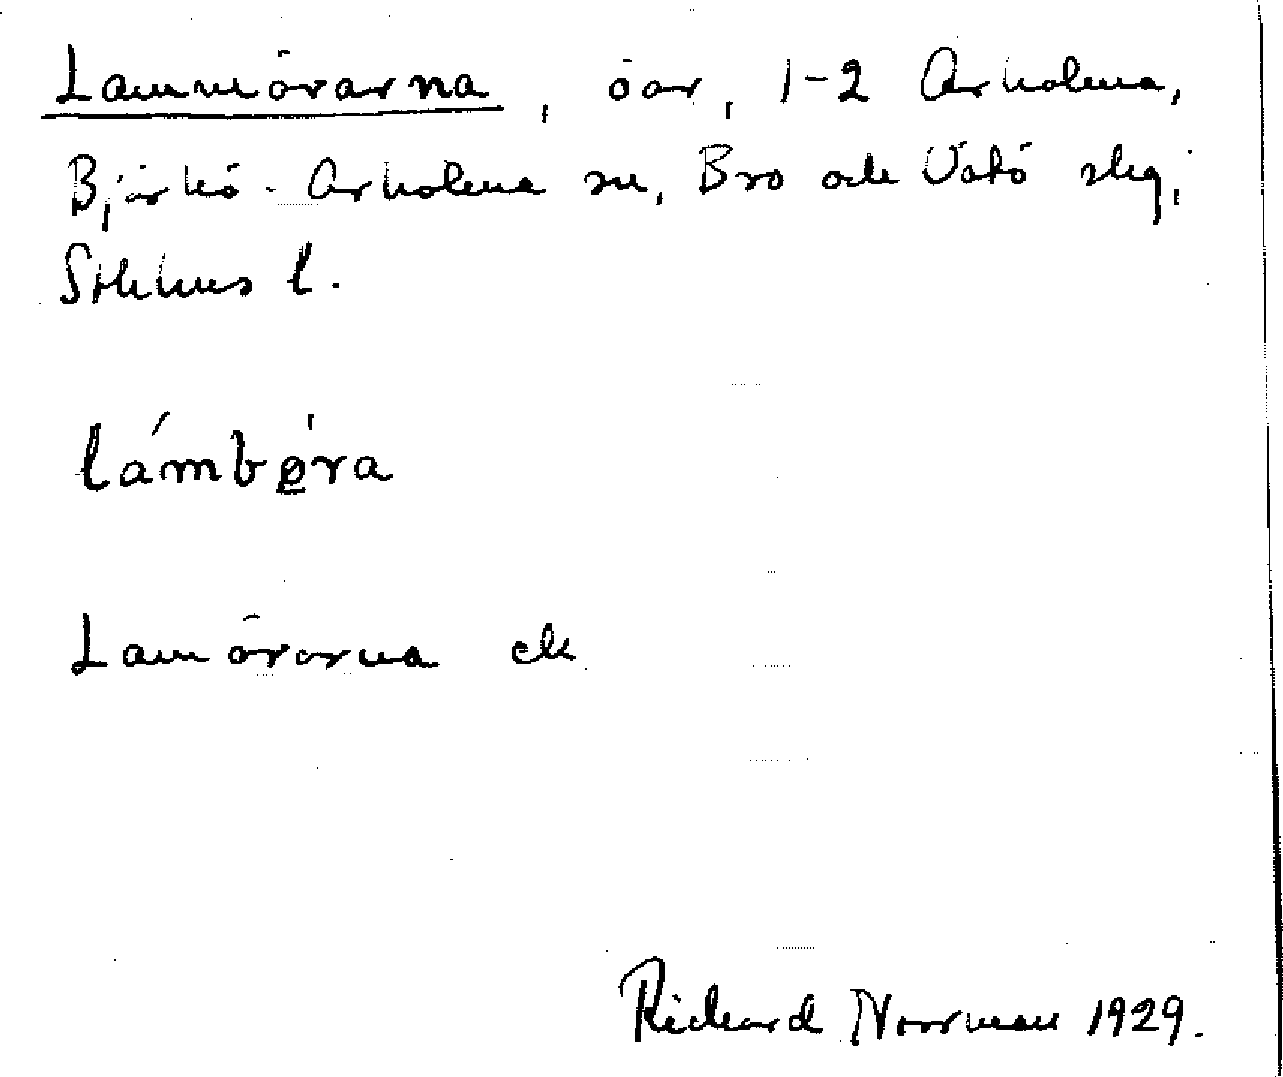 Lammörarna, öar, 1-2 Arholma,
Björkö-Arholma sn, Bro och Vätö slg,
Sthlms l.
lámbø̨̀ra
Lamörarna ek
Richard Norrman 1929.